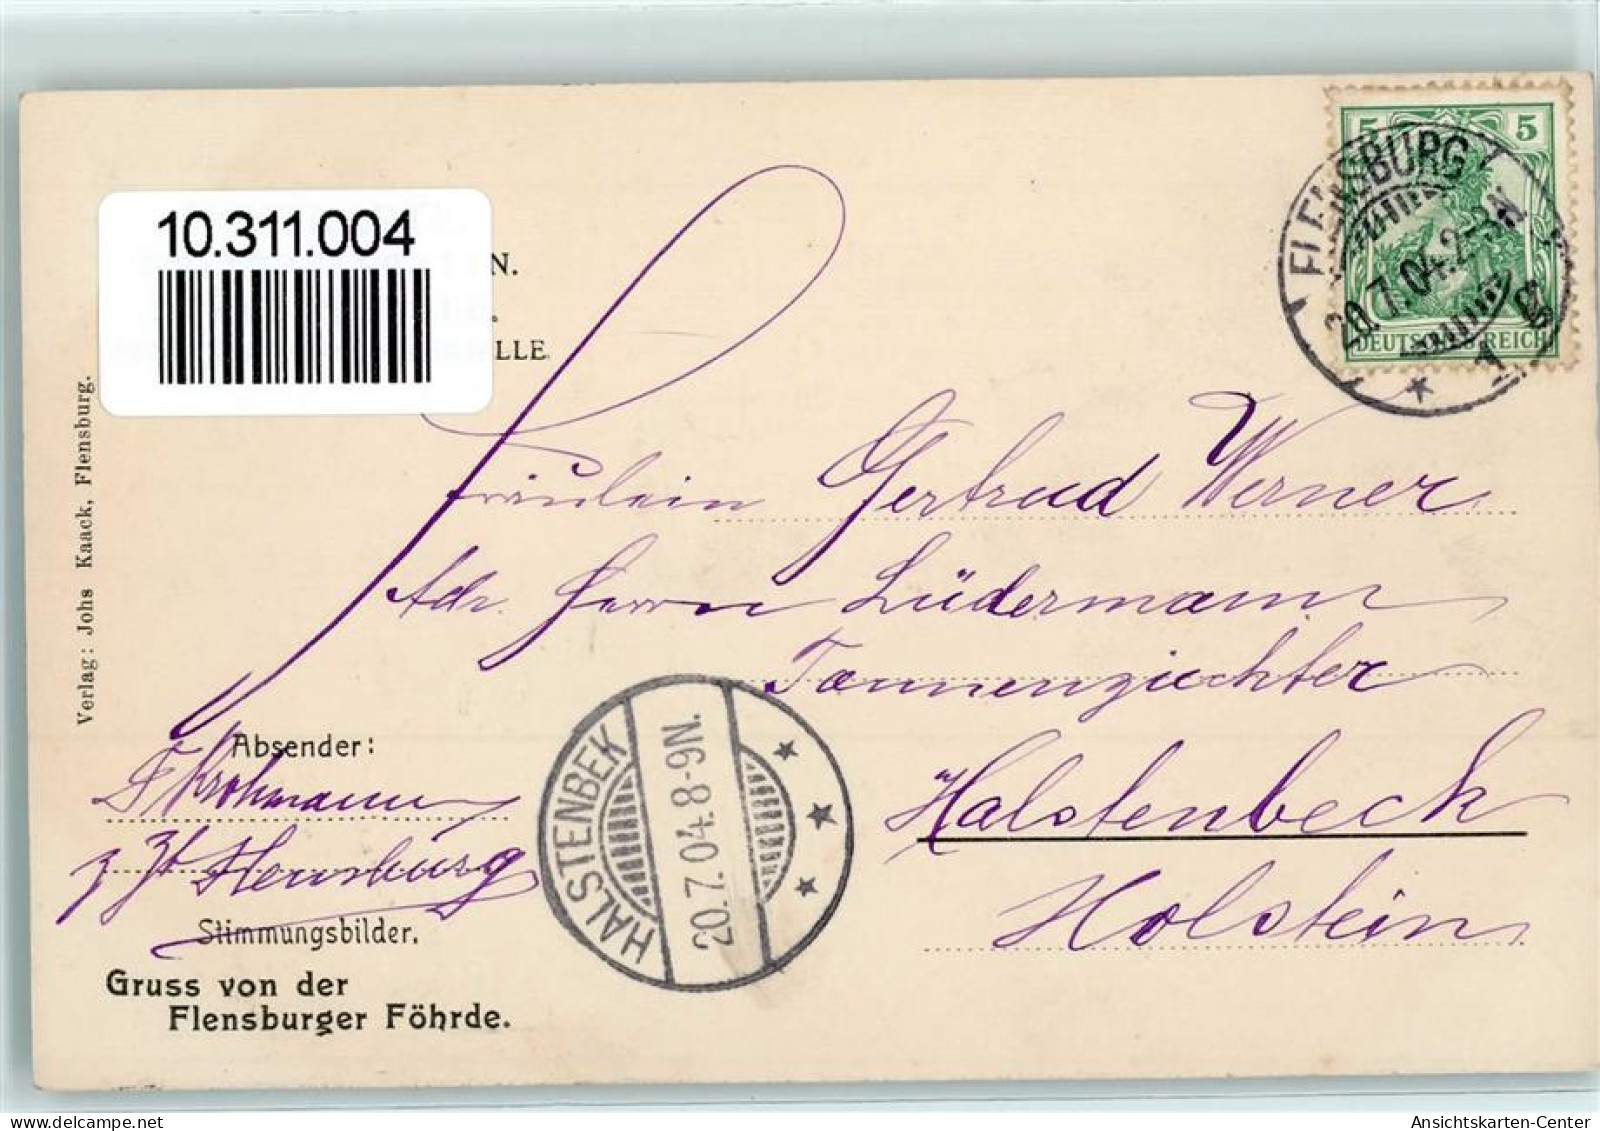 10.311.004
N.
LLE
Verlag: Johs Kaack, Flensburg.
5 5
DEUTSCHES REICH
FLENSBURG
20.7.04.2-3N
* 1
Fräulein Gertrud Werner
Adr. Herrn Lüdermann
Tannenzüchter
Halstenbeck
Holstein
Absender:
Krohmann
z Zt
Stimmungsbilder.
Gruss von der
Flensburger Föhrde.
HALSTENBEK
20.7.04.8-9N.
Ansichtskarten-Center